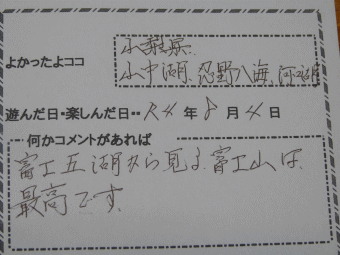 山梨県、
よかったよココ
山中湖、忍野八海、河口湖
遊んだ日・楽しんだ日・・R4年8月4日
何かコメントがあれば
富士五湖から見る富士山は、
最高です。